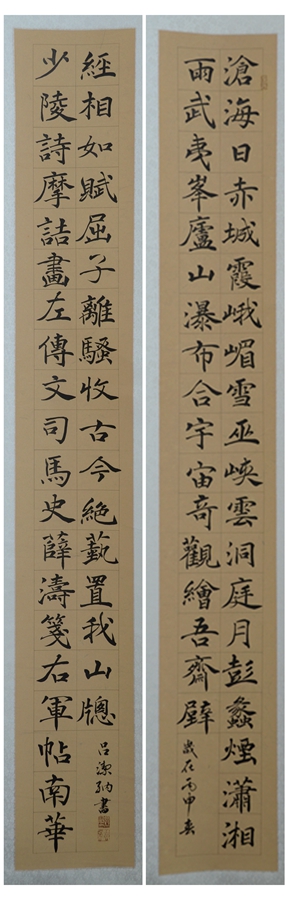 滄海日赤城霞峨嵋雪巫峽雲洞庭月彭蠡煙瀟湘
雨武夷峯廬山瀑布合宇宙奇觀繪吾齋壁
歲在丙申春
少陵詩摩詰畫左傳文司馬史薛濤箋右軍帖南華
經相如賦屈子離騷收古今絶藝置我山牕
呂潔納書